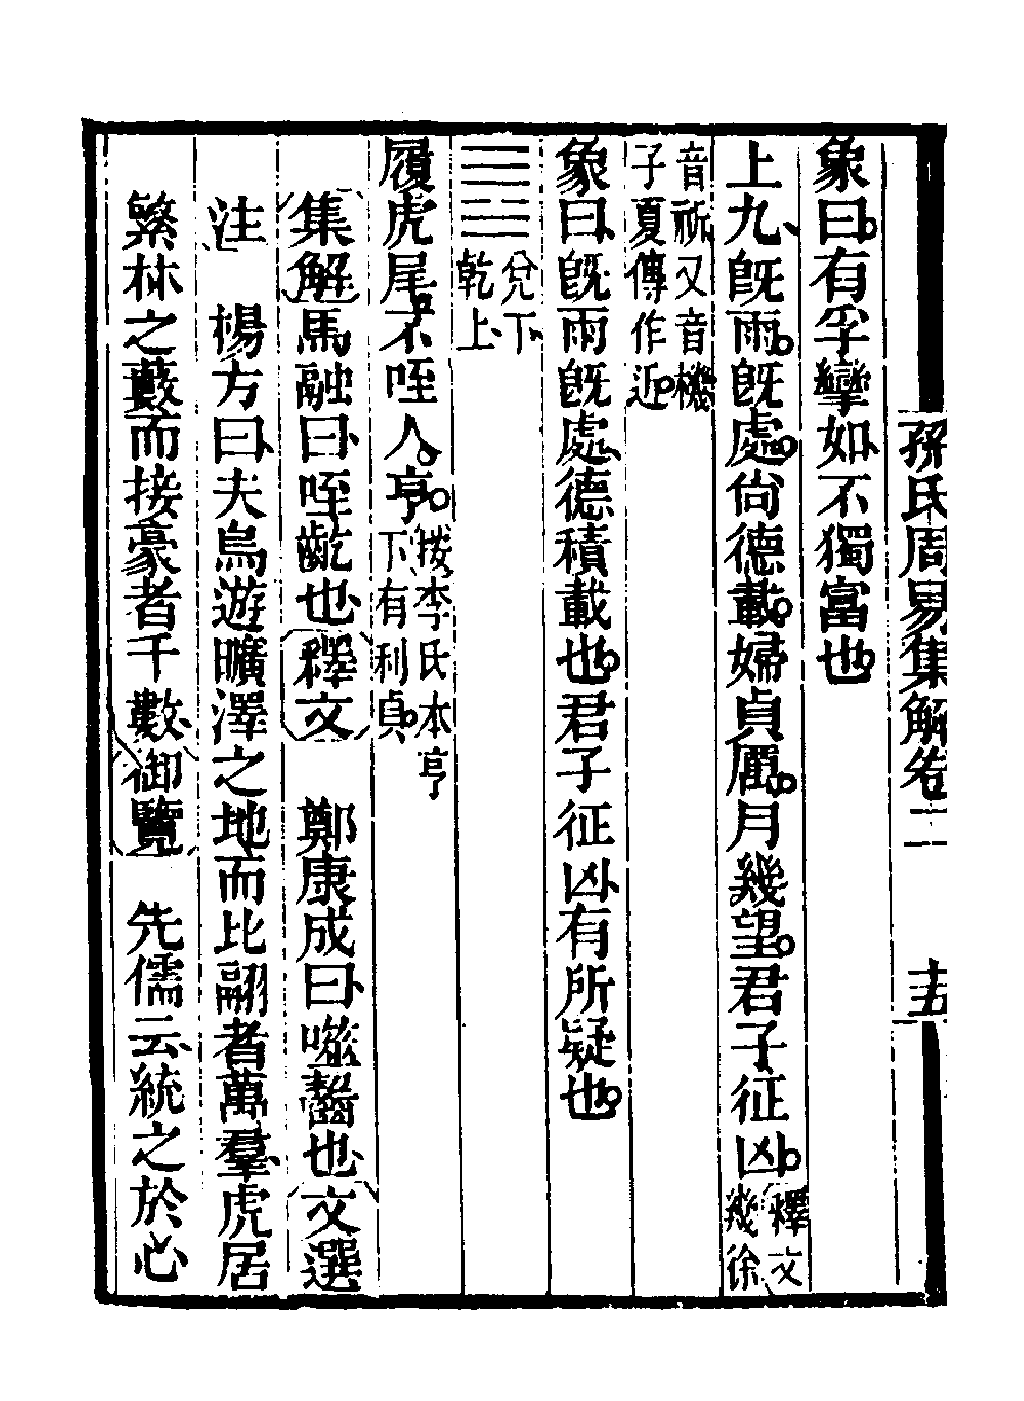 孫氏周易集解卷二
十五
象曰有孚攣如不獨富也
上九旣雨旣處尙德載婦貞厲月幾望君子征凶釋文幾徐
音祈又音機子夏傳作近
象曰旣雨旣處德積載也君子征凶有所疑也
兌下乾上
履虎尾不咥人亨按李氏本亨下有利貞
集解馬融曰咥齕也釋文　鄭康成曰噬齧也文選
注　楊方曰夫鳥遊曠澤之地而比翮者萬羣虎居
繁林之藪而接豪者千數御覽　先儒云統之於心